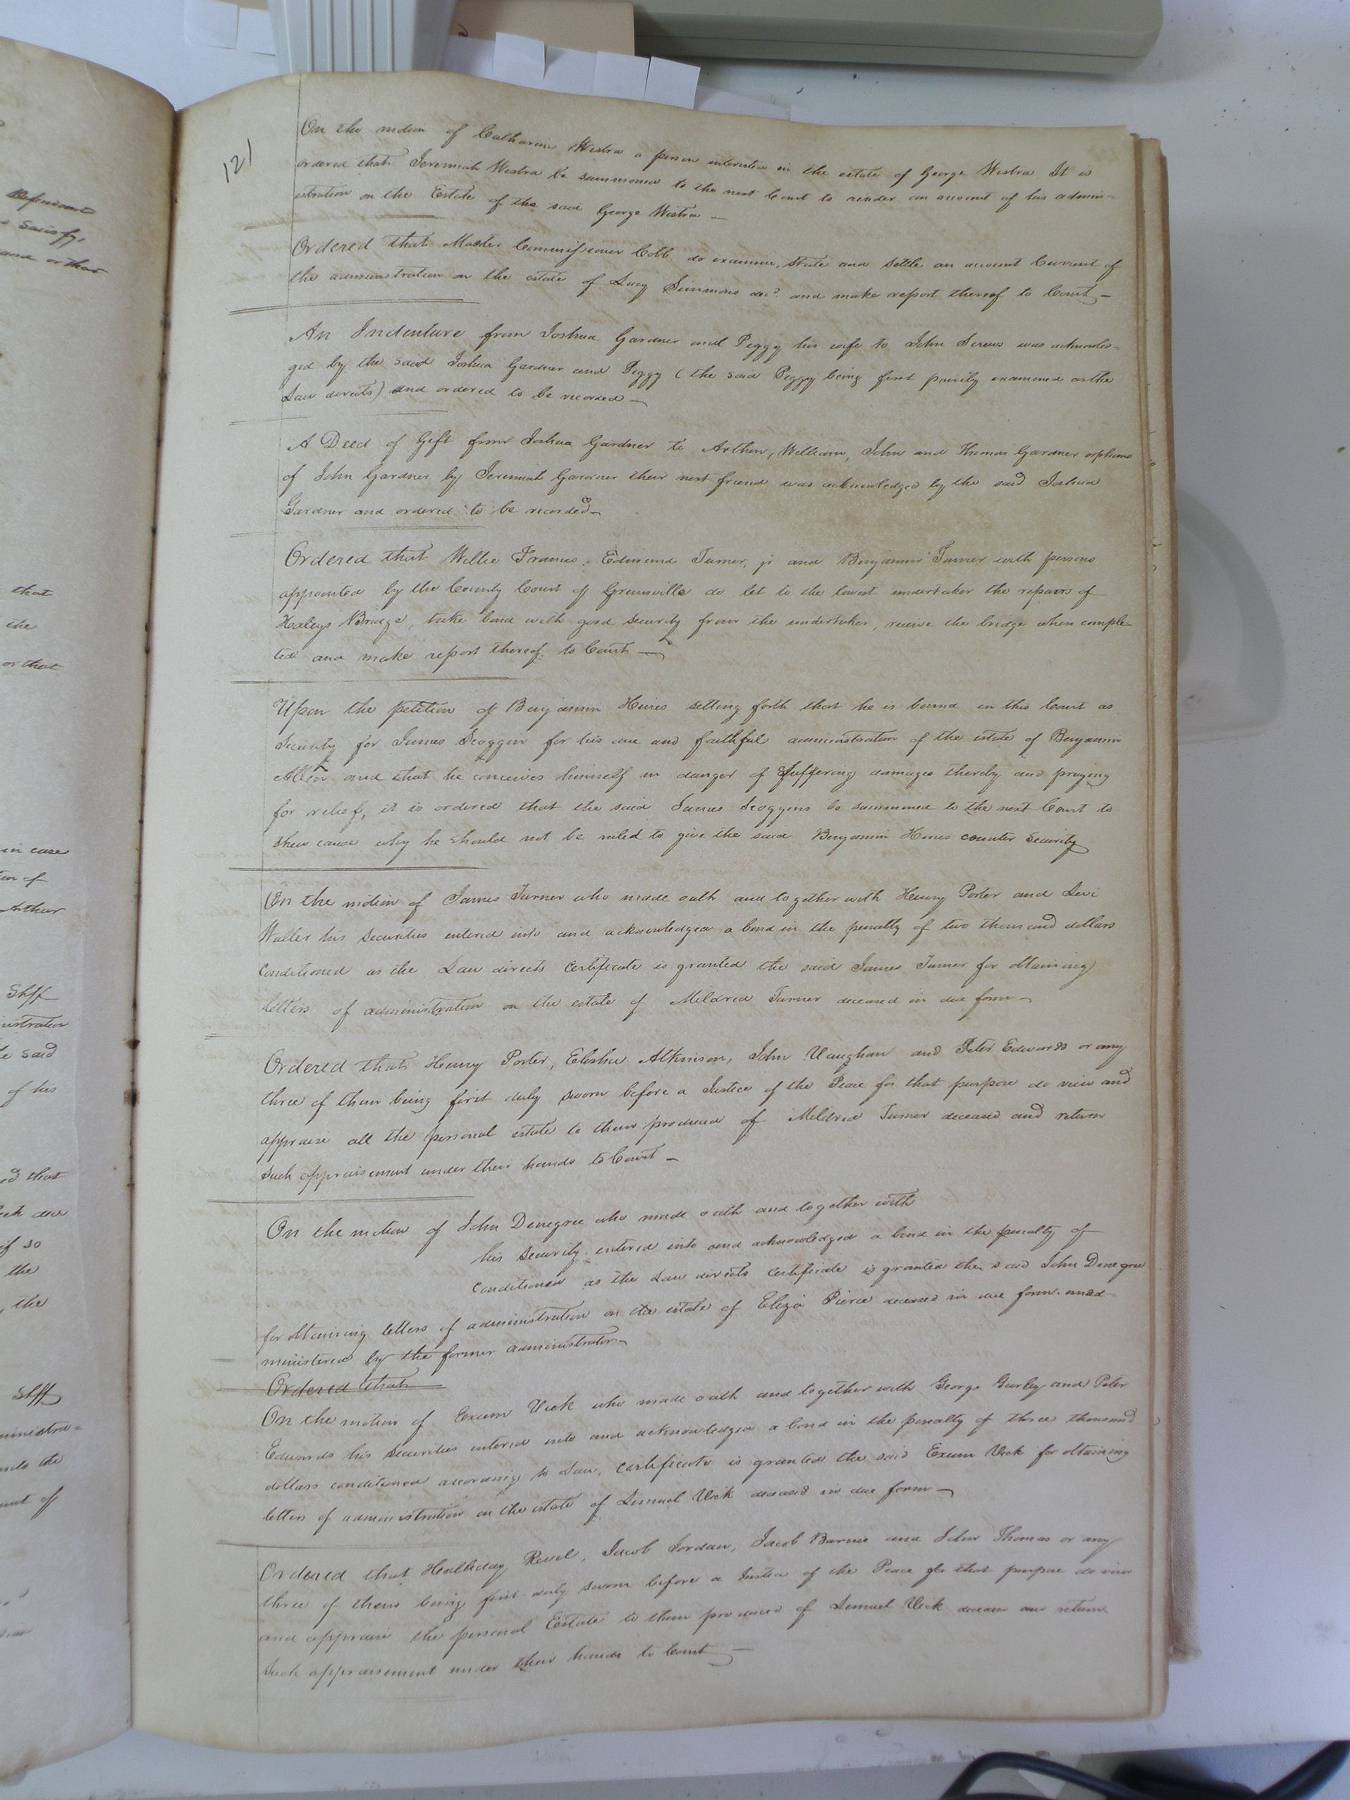 121
On the motion of Catharine Westra a person interested in the estate of George Westra It is
ordered that Jeremiah Westra be summoned to the next Court to render an account of his admin-
istration on the Estate of the said George Westra
Ordered that Master Commissioner Cobb do examine, state and settle an account Current of
the administration on the estate of Lucy Simmons decd. and make report thereof to Court
An Indenture from Joshua Gardner and Peggy his wife to John Screws was acknowled-
ged by the said Joshua Gardner and Peggy (the said Peggy being first privily examined as the
Law directs) and ordered to be recorded
A Deed of Gift from Joshua Gardner to Arthur, William, John and Thomas Gardner orphans
of John Gardner by Jeremiah Gardner their next friend was acknowledged by the said Joshua
Gardner and ordered to be recorded
Ordered that Willie Francis, Edmund Turner, jr and Benjamin Turner with persons
appointed by the County Court of Greensville do let to the lowest undertaker the repairs of
Haleys Bridge, take bond with good security from the undertaker, receive the bridge when comple-
ted and make report thereof to Court
Upon the petition of Benjamin Hines setting forth that he is bound in this Court as
Security for James Scoggin for his due and faithful administration of the estate of Benjamin
and that he conceives himself in danger of suffering damages thereby and praying
for relief, it is ordered that the said James Scoggins be summoned to the next Court to
shew cause why he should not be ruled to give the said Benjamin Hines counter security
On the motion of James Turner who made oath and together with Henry Porter and Levi
Waller his securities entered into and acknowledged a bond in the penalty of two thousand dollars
Conditioned as the Law directs certificate is granted the said James Turner for obtaining
letters of administration on the estate of Mildred Turner deceased in due form
Ordered that Henry Porter, Elisha Atkinson, John Vaughan and Peter Edwards or any
three of them being first duly sworn before a Justice of the Peace for that purpose do view and
appraise all the personal estate to them produced of Mildred Turner deceased and return
such appraisement under their hands to Court
On the motion of John Denegree who made oath and together with
his security entered into and acknowledged a bond in the penalty of
conditioned as the Law directs certificate is granted the said John Denegree
for obtaining letters of administration on the estate of Eliza Pierce deceased in due form unad-
ministered by the former administrator
Ordered that
On the motion of Exum Vick who made oath and together with George Gurley and Peter
Edwards his securities entered into and acknowledged a bond in the penalty of three thousand
dollars conditioned according to Law, certificate is granted the said Exum Vick for obtaining
letters of administration on the estate of Lemuel Vick deceased in due form
Ordered that Halliday Revel, Jacob Jordan, Jacob Barnes and John Thomas or any
three of them being first duly sworn before a Justice of the Peace for that purpose do view
and appraise the personal Estate to them produced of Lemuel Vick and return
such appraisement under their hands to Court